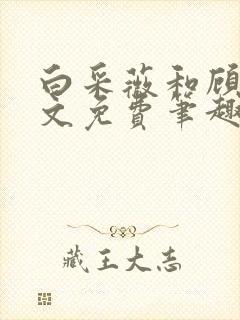 白采薇和顾
文免费笔趣
藏王大志